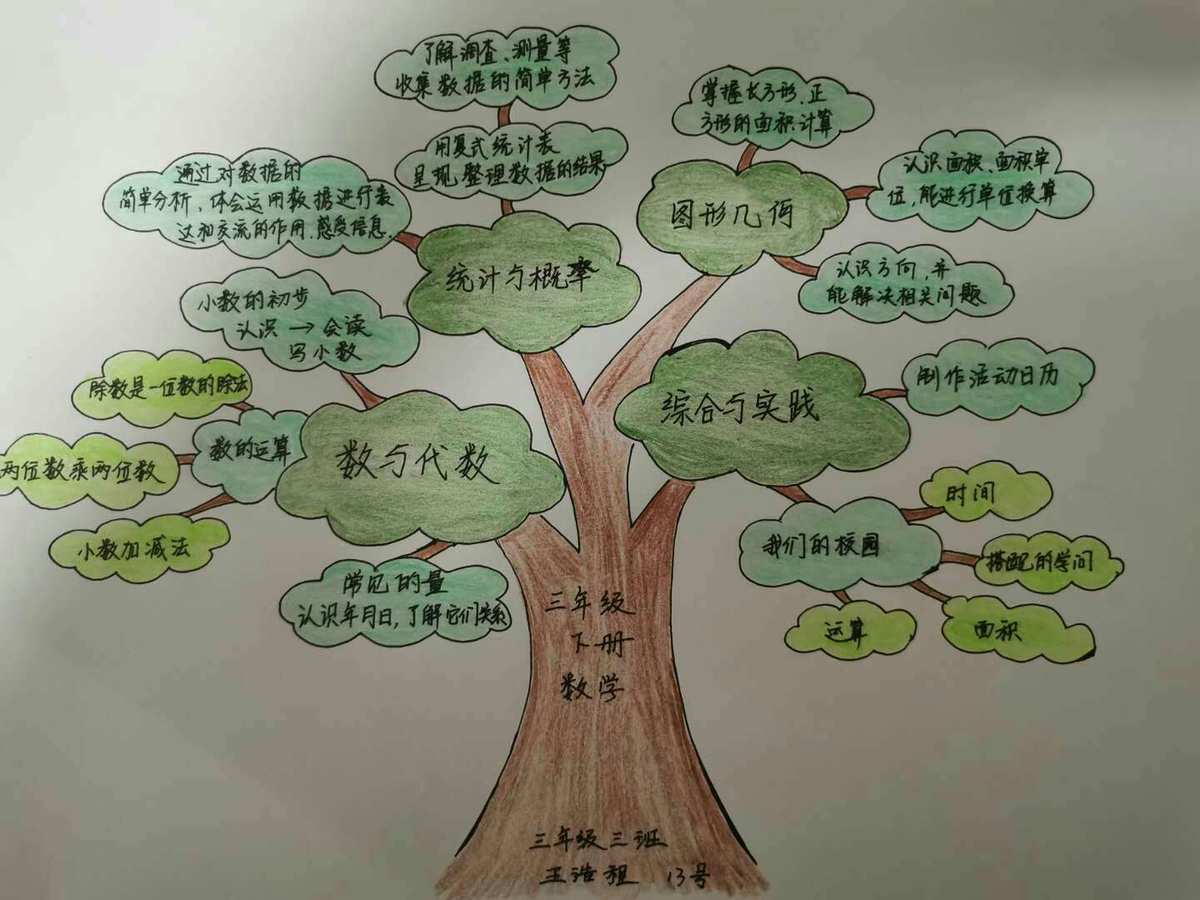 了解调查、测量等
收集数据的简单方法
用复式统计表
呈现,整理数据的结果
通过对数据的
简单分析、体会运用数据进行表
达和交流的作用.感受信息.
统计与概率
掌握长方形、正
方形的面积计算
认识面积、面积单
位,能进行单位换算
图形几何
认识方向,并
能解决相关问题
小数的初步
认识→会读
写小数
除数是一位数的除法
两位数乘两位数
数的运算
小数加减法
数与代数
常见的量
认识年月日,了解它们关系
综合与实践
制作活动日历
时间
我们的校园
搭配的学问
运算
面积
三年级
下册
数学
三年级三班
王浩 13号